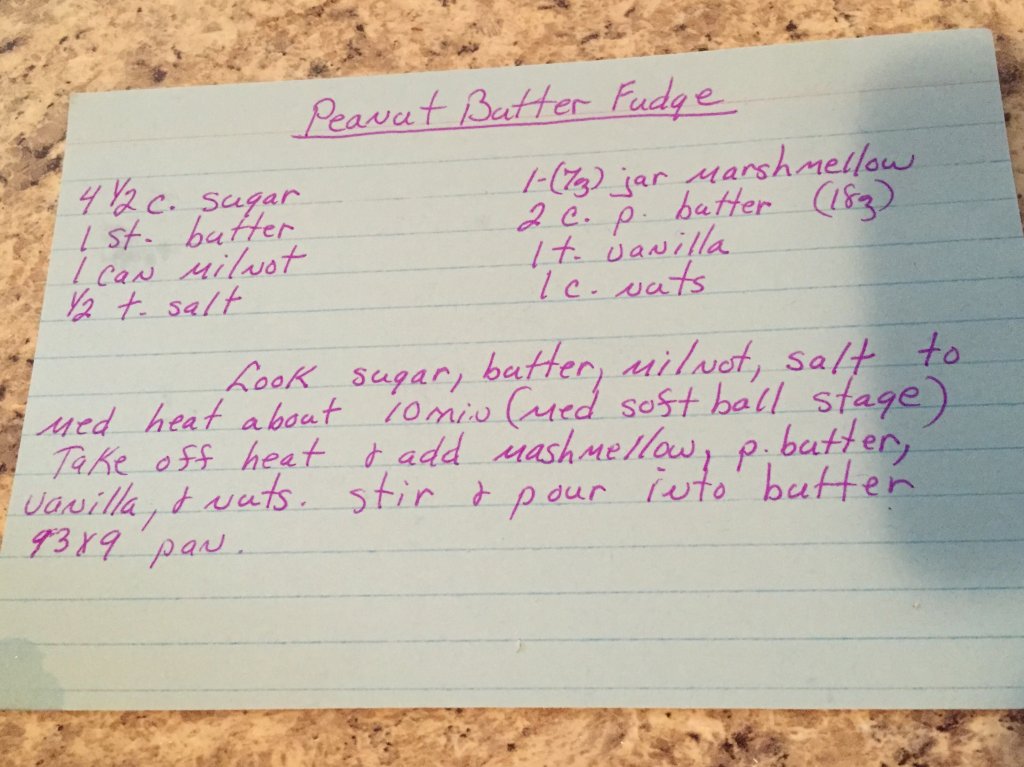 Peanut Butter Fudge
4 1/2 c. sugar
1 st. butter
1 can milnot
1/2 t. salt
1-(7℥) jar marshmellow
2 c. p. butter (18℥)
1 t. vanilla
1 c. nuts
Cook sugar, butter, milnot, salt to
med heat about 10 min (med soft ball stage)
Take off heat & add mashmellow, p. butter,
vanilla, & nuts. stir & pour into butter
93x9 pan.